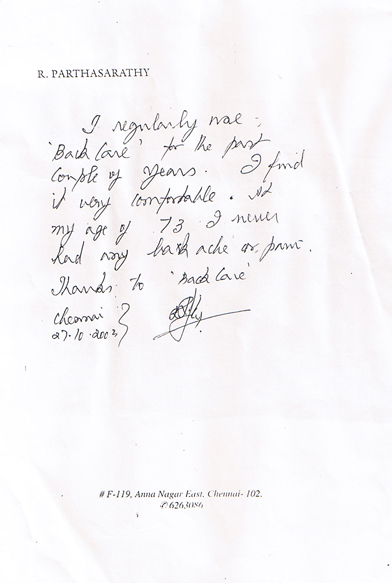 R. PARTHASARATHY
I regularly use
'Back Care' for the past
couple of years. I find
it very comfortable. At
my age of 73 I never
had any back ache or pain.
Thanks to 'Back Care'
Chennai
27.10.2003
# F-119, Anna Nagar East, Chennai- 102.
✆6263086